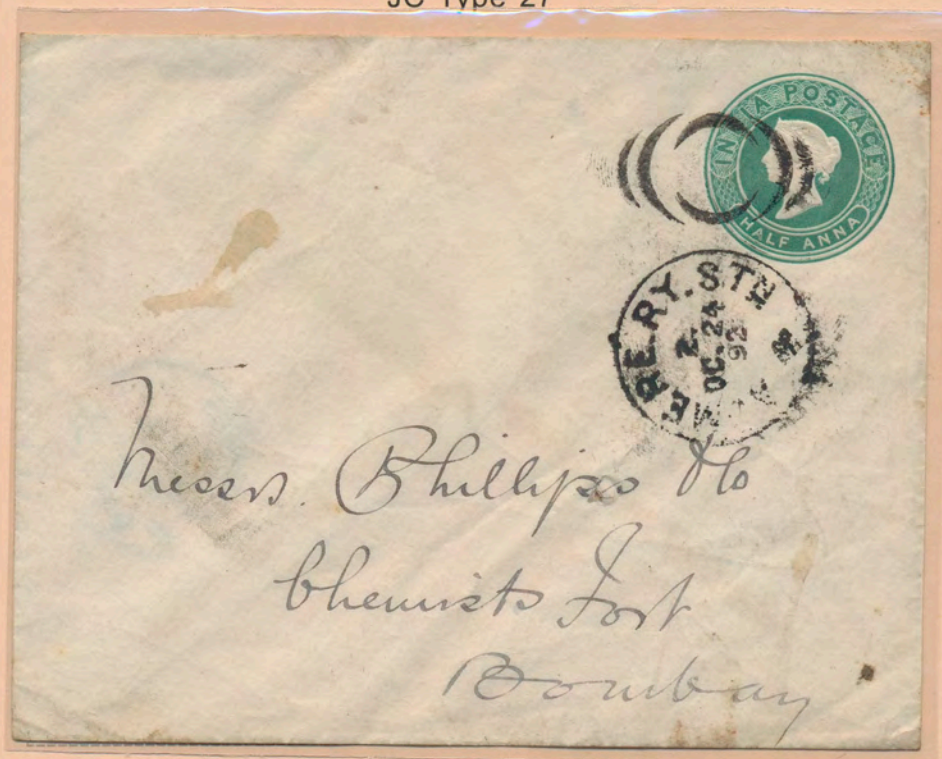 JC Type 27
INDIA POSTAGE
HALF ANNA
MERE.RY.STN
OC.24
92
Messrs. Phillips & Co
Chemists Fort
Bombay